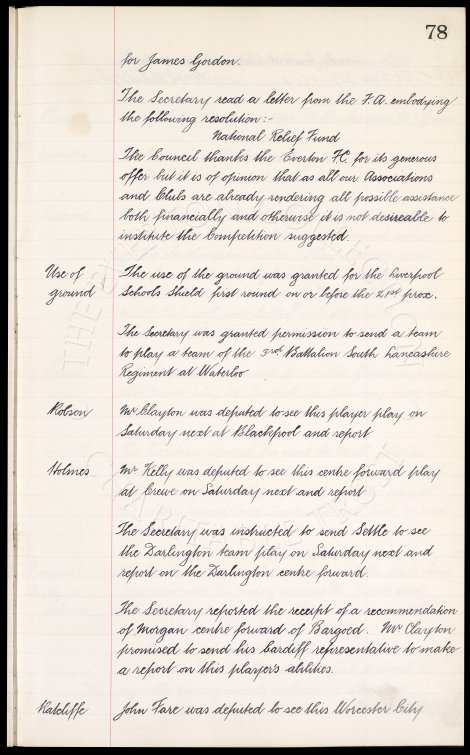 78
for James Gordon.
The Secretary read a letter from the F.A. embodying
the following resolution:-
National Relief Fund
The Council thanks the Everton F.C. for its generous
offer but it is of opinion that as all our Associations
and Clubs are already rendering all possible assistance
both financially and otherwise it is not desireable to
institute the Competition suggested.
Use of The use of the ground was granted for the Liverpool
ground Schools Shield first round on or before the 21st prox.
The Secretary was granted permission to send a team
to play a team of the 3rd Battalion South Lancashire
Regiment at Waterloo
Robson Mr Clayton was deputed to see this player play on
Saturday next at Blackpool and report
Holmes Mr Kelly was deputed to see this centre forward play
at Crewe on Saturday next and report
The Secretary was instructed to send Settle to see
the Darlington team play on Saturday next and
report on the Darlington centre forward.
The Secretary reported the receipt of a recommendation
of Morgan centre forward of Bargoed. Mr Clayton
promised to send his Cardiff representative to make
a report on this player's abilities.
Ratcliffe John Fare was deputed to see this Worcester City